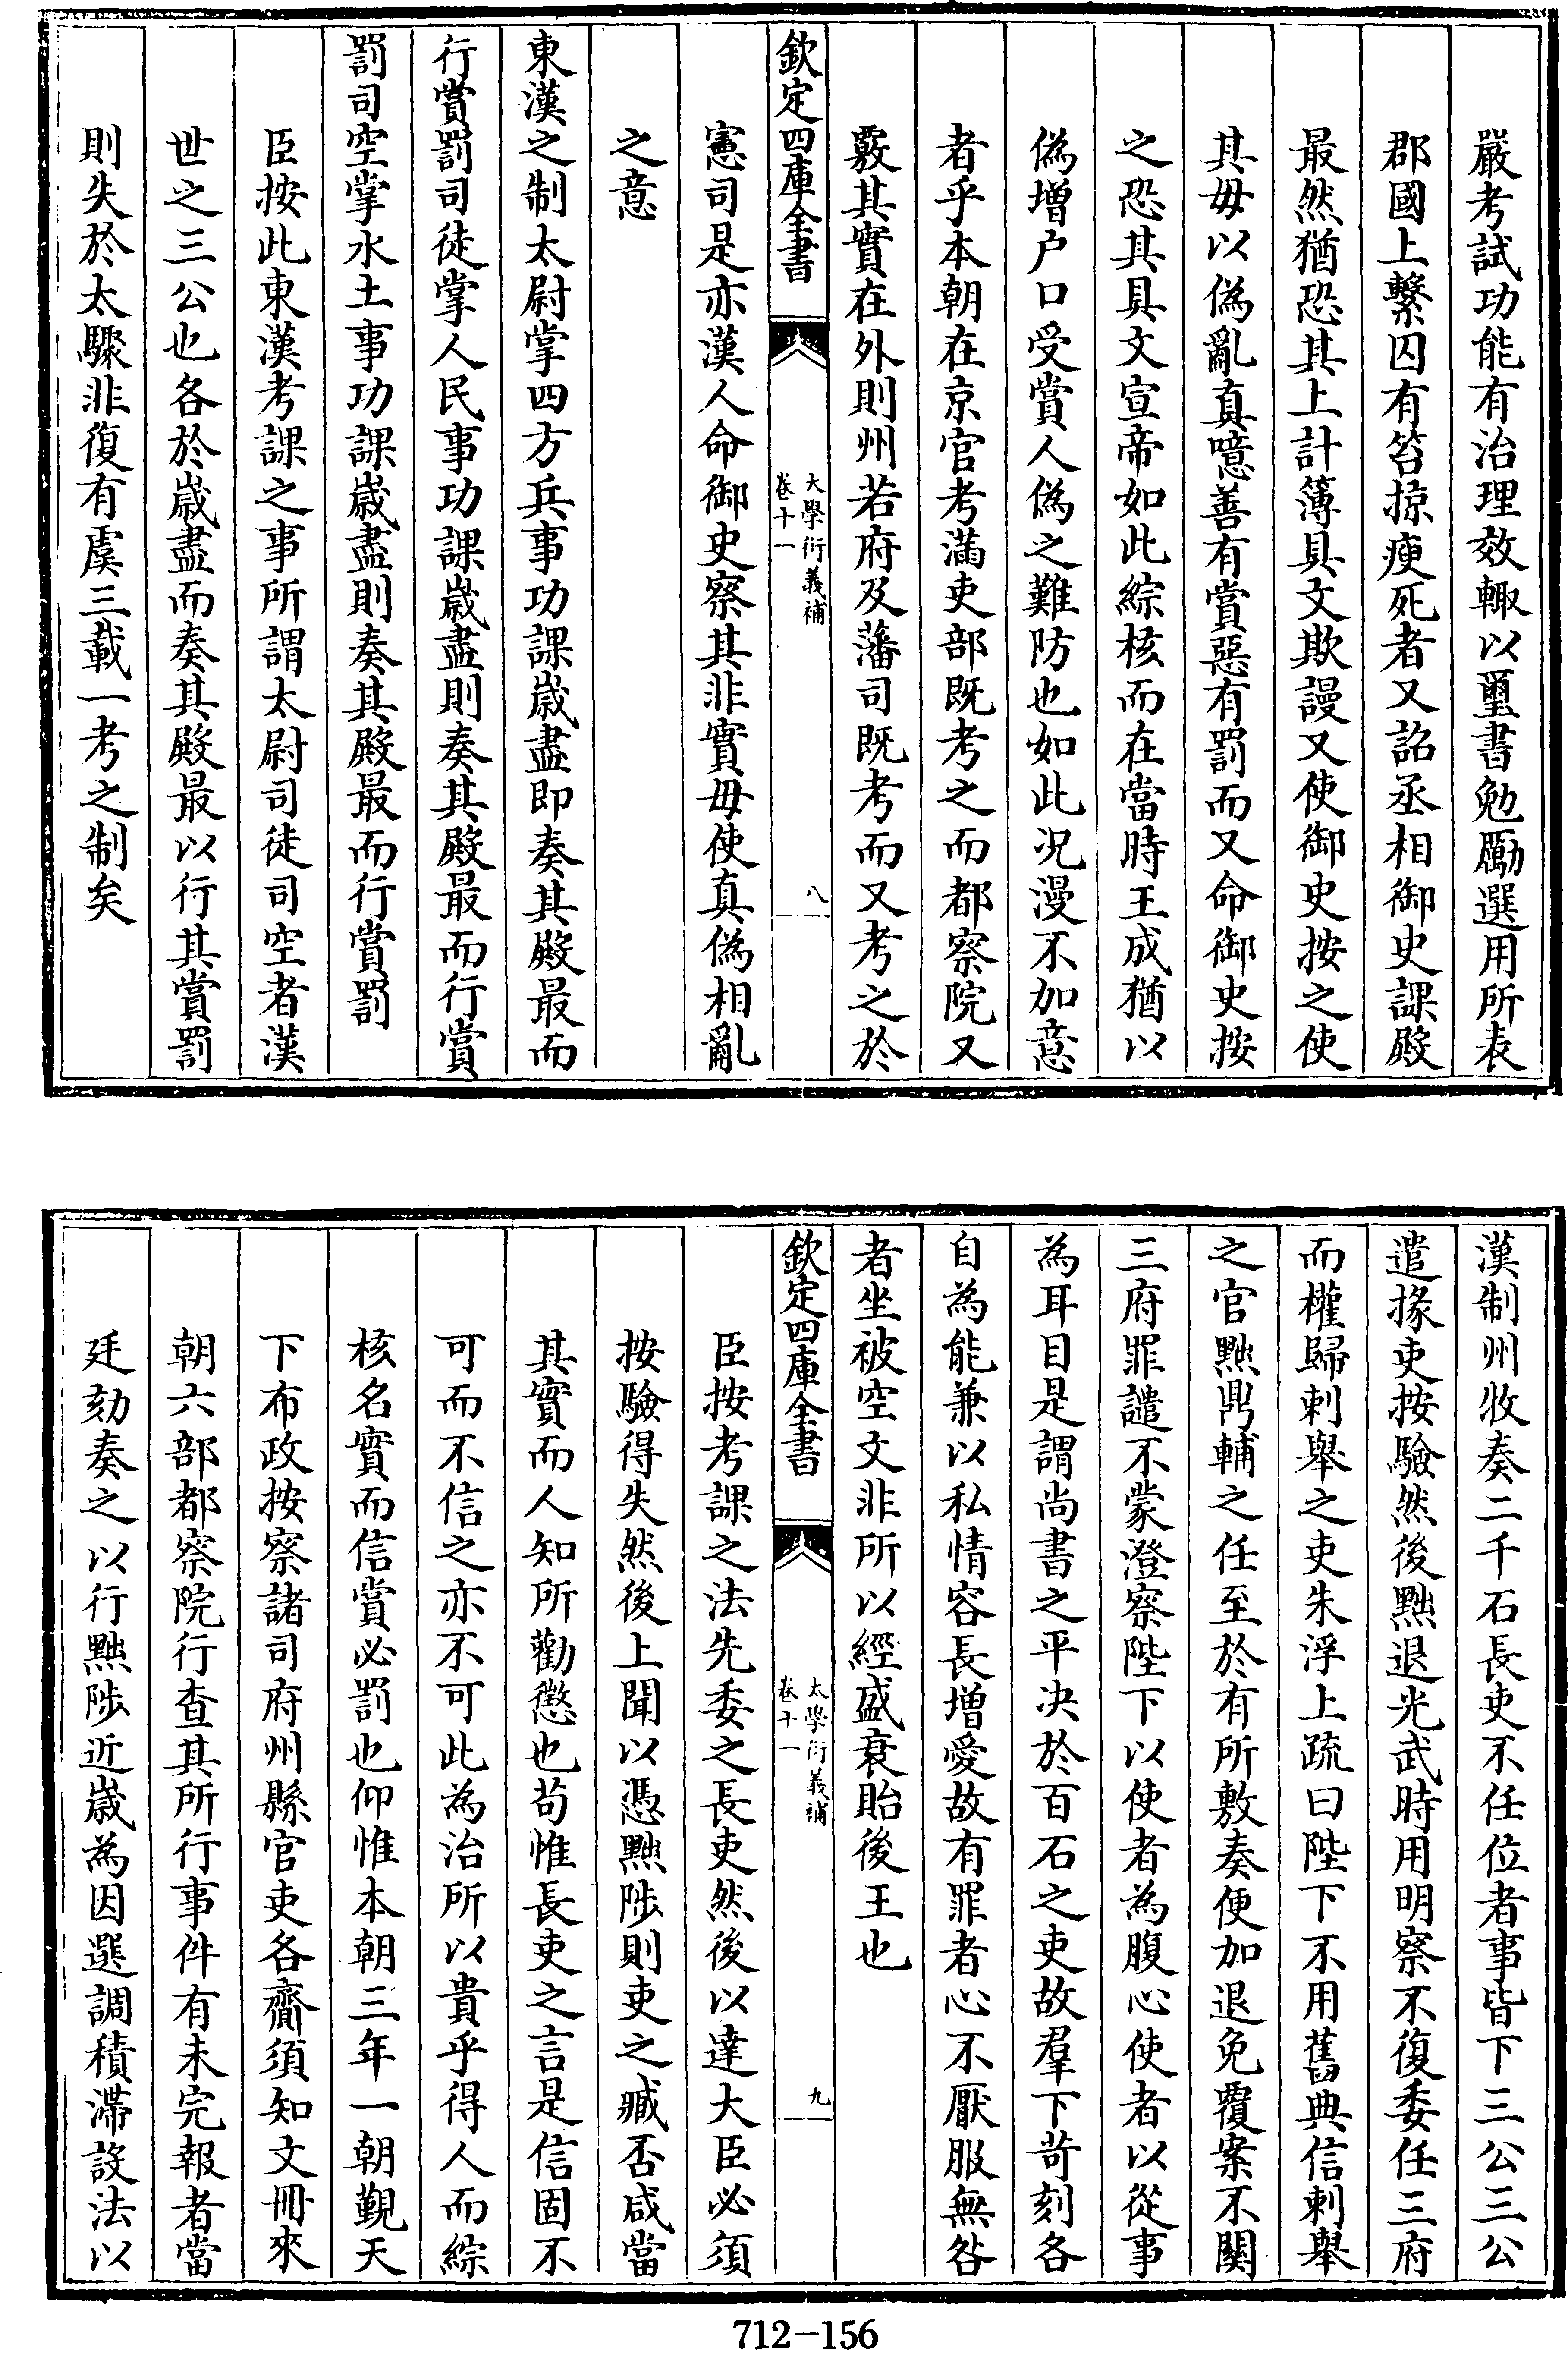 嚴考試功能有治理效輙以璽書勉勵選用所表
郡國上繫囚有笞掠瘐死者又詔丞相御史課殿
最然猶恐其上計簿具文欺謾又使御史按之使
其毋以偽亂真噫善有賞惡有罰而又命御史按
之恐其具文宣帝如此綜核而在當時王成猶以
偽增户口受賞人偽之難防也如此况漫不加意
者乎本朝在京官考滿吏部既考之而都察院又
覈其實在外則州若府及藩司既考而又考之於
欽定四庫全書
大學衍義補
卷十一
八
憲司是亦漢人命御史察其非實毋使真偽相亂
之意
東漢之制太尉掌四方兵事功課嵗盡即奏其殿最而
行賞罰司徒掌人民事功課嵗盡則奏其殿最而行賞
罰司空掌水土事功課嵗盡則奏其殿最而行賞罰
臣按此東漢考課之事所謂太尉司徒司空者漢
世之三公也各於嵗盡而奏其殿最以行其賞罰
則失於太驟非復有虞三載一考之制矣
漢制州牧奏二千石長吏不任位者事皆下三公三公
遣掾吏按驗然後黜退光武時用明察不復委任三府
而權歸刺舉之吏朱浮上疏曰陛下不用舊典信刺舉
之官黜鼎輔之任至於有所敷奏便加退免覆案不關
三府罪譴不蒙澄察陛下以使者為腹心使者以從事
為耳目是謂尚書之平决於百石之吏故羣下苛刻各
自為能兼以私情容長增愛故有罪者心不厭服無咎
者坐被空文非所以經盛衰貽後王也
欽定四庫全書
大學衍義補
卷十一
九
臣按考課之法先委之長吏然後以達大臣必須
按驗得失然後上聞以憑黜陟則吏之臧否咸當
其實而人知所勸懲也苟惟長吏之言是信固不
可而不信之亦不可此為治所以貴乎得人而綜
核名實而信賞必罰也仰惟本朝三年一朝覲天
下布政按察諸司府州縣官吏各齎須知文冊來
朝六部都察院行查其所行事件有未完報者當
廷劾奏之以行黜陟近嵗為因選調積滯設法以
712-156